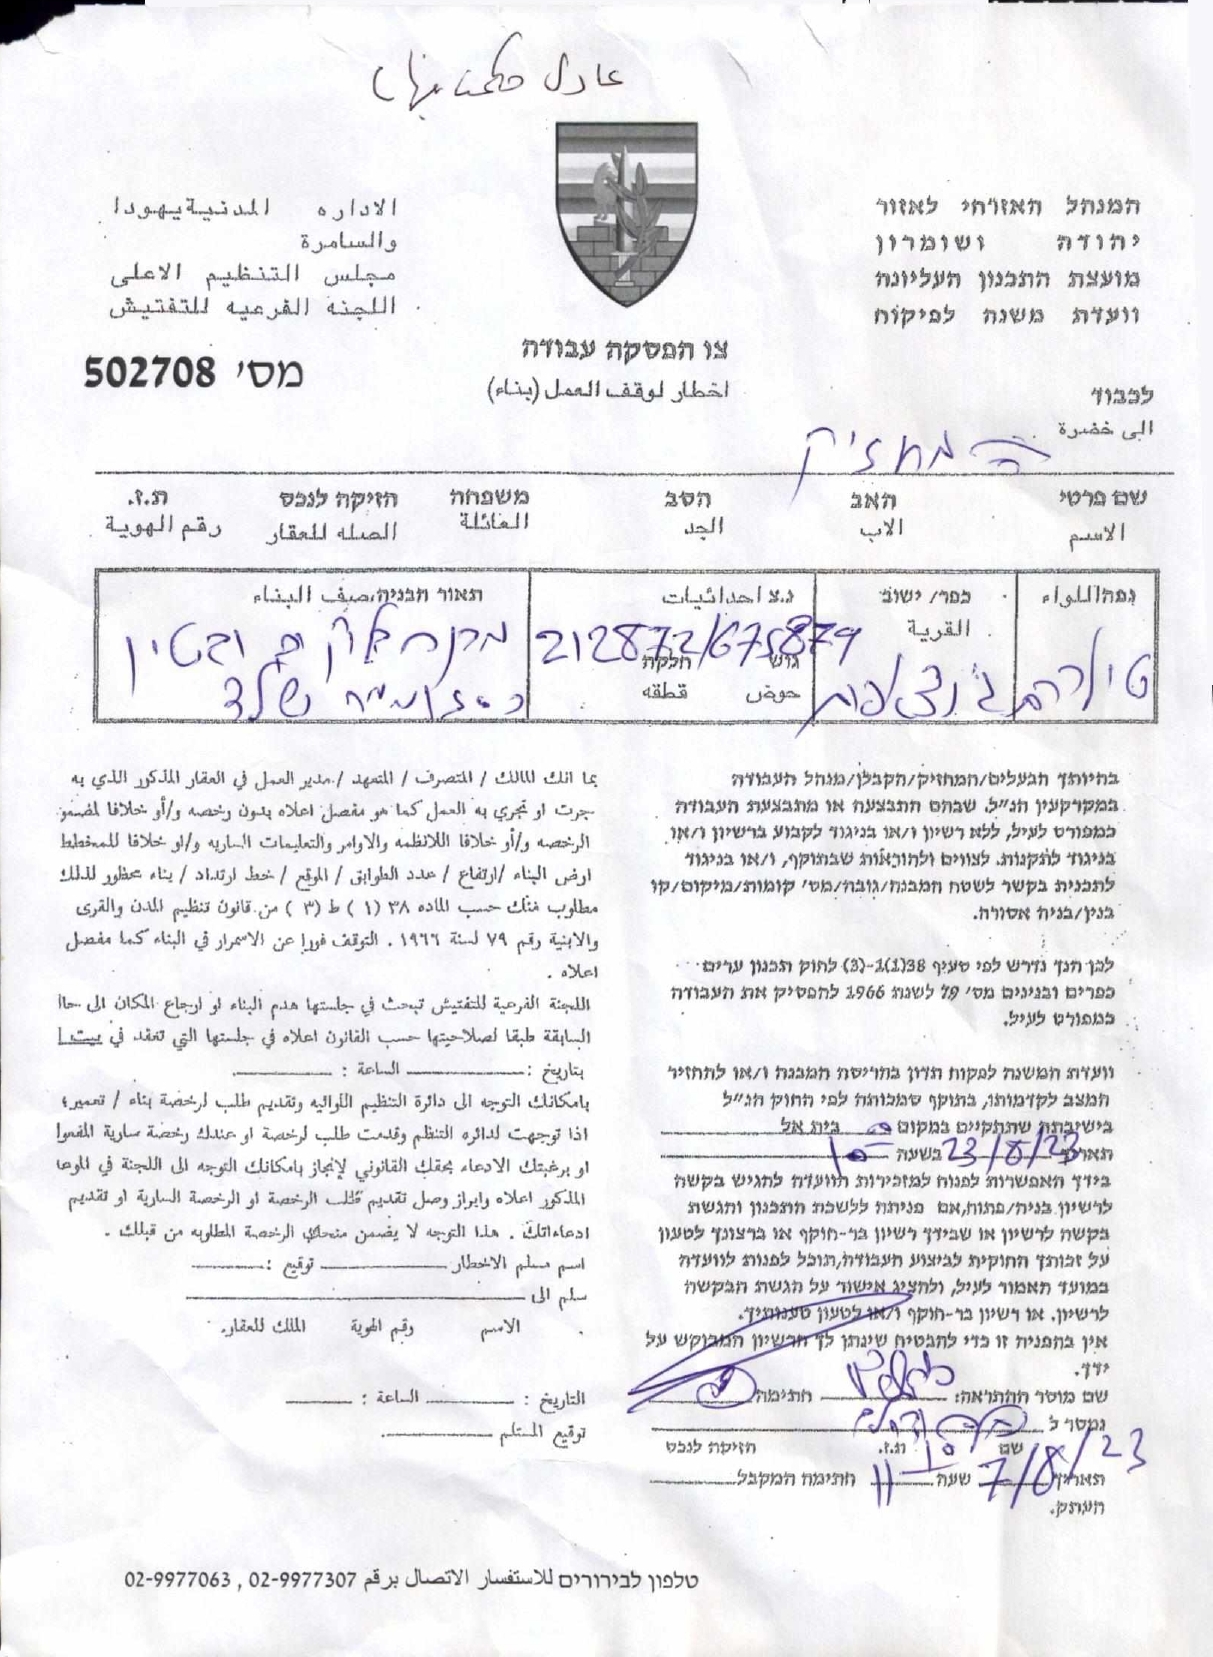 عادل حكمت
המנהל האזרחי לאזור
יהודה ושומרון
מועצת התכנון העליונה
וועדת משנה לפיקוח
الاداره المدنية يهودا
والسامرة
مجلس التنظيم الاعلى
اللجنه الفرعيه للتفتيش
צו הפסקה עבודה
اخطار لوقف العمل (بناء)
מס' 502708
לכבוד
الى حضرة
המחזיק
שם פרטי האב הסב משפחה הזיקה לנכס ת.ז.
الاسم الاب الجد العائلة الصله للعقار رقم الهوية
נפה اللواء כפר/ ישוב נ.צ احداثيات תאור הבניה، صيف البناء
القرية
212872/675879
גוש חלקה
حوض قطقه
טולכרם
בחיותך הבעלים/המחזיק/הקבלן/מנהל העבודה
במקרקעין הנ"ל, שבהם התבצעה או מתבצעת העבודה
כמפורט לעיל, ללא רשיון ו/או בניגוד לקבוע ברשיון ו/או
בניגוד לתקנות, לצווים ולהוראות שבתוקף, ו/או בניגוד
לתכנית בקשר לשטח המבנה/גובה/מס' קומות/מיקום/קו
בנין/בניה אסורה.
לכן הנך נדרש לפי סעיף 38(1)-(3) לחוק תכנון ערים
כפרים ובנינים מס' 79 לשנת 1966 להפסיק את העבודה
כמפורט לעיל.
וועדת המשנה לפקוח תדון בהריסת המבנה ו/או להחזיר
המצב לקדמותו, בתוקף סמכותה לפי החוק הנ"ל
בישיבתה שתתקיים במקום בית אל
תאריך 23/8/23 בשעה 10
בידך האפשרות לפנות למזכירות הוועדה להגיש בקשה
לרשיון בניה/פתוח, אם פניתה ללשכת התכנון והגשת
בקשה לרשיון או שבידך רשיון בר-תוקף או ברצונך לטעון
על זכותך החוקית לביצוע העבודה, תוכל לפנות לוועדה
במועד האמור לעיל, ולהציג אישור על הגשת הבקשה
לרשיון, או רשיון בר-תוקף ו/או לטעון טענותיך.
אין בהפניה זו כדי להבטיח שינתן לך הרשיון המבוקש על
ידך.
שם מוסר ההתראה: חתימה
נמסר ל
שם ת.ז. הזיקה לנכס
תאריך 7/8/23 שעה חתימה המקבל
העתק.
بما انك المالك / المتصرف / المتعهد / مدير العمل في العقار المذكور الذي به
جرت او تجري به العمل كما هو مفصل اعلاه بدون رخصه و/أو خلافا لمضمو
الرخصه و/أو خلافا اللانظمه والاوامر والتعليمات الساريه و/او خلافا للمخطط
ارض البناء /ارتفاع / عدد الطوابق / الموقع / خط ارتداد / بناء محظور لذلك
مطلوب منك حسب الماده ٣٨ (١) ط (٣) من قانون تنظيم المدن والقرى
والابنية رقم ٧٩ لسنة ١٩٦٦ . التوقف فورا عن الاسمرار في البناء كما مفصل
اعلاه .
اللجنة الفرعية للتفتيش تبحث في جلستها هدم البناء او ارجاع المكان الى حاا
السابقة طبقا لصلاحيتها حسب القانون اعلاه في جلستها التي تعقد في بيت ا
بتاريخ : الساعة :
بامكانك التوجه الى دائرة التنظيم اللوائيه وتقديم طلب لرخصة بناء / تعمير؛
اذا توجهت لدائره التنظم وقدمت طلب لرخصة او عندك رخصة سارية المفعوا
او برغبتك الادعاء بحقك القانوني لإنجاز بامكانك التوجه الى اللجنة في الموعا
المذكور اعلاه وابراز وصل تقديم طلب الرخصة او الرخصة السارية او تقديم
ادعاءاتك . هذا التوجه لا يضمن منحك الرخصة المطلوبه من قبلك .
اسم مسلم الاخطار توقيع :
سلم الى
الاسم رقم الهوية الملك للعقار.
التاريخ : الساعة :
توقيع المستلم
טלפון לבירורים للاستفسار الاتصال برقم 02-9977307 , 02-9977063